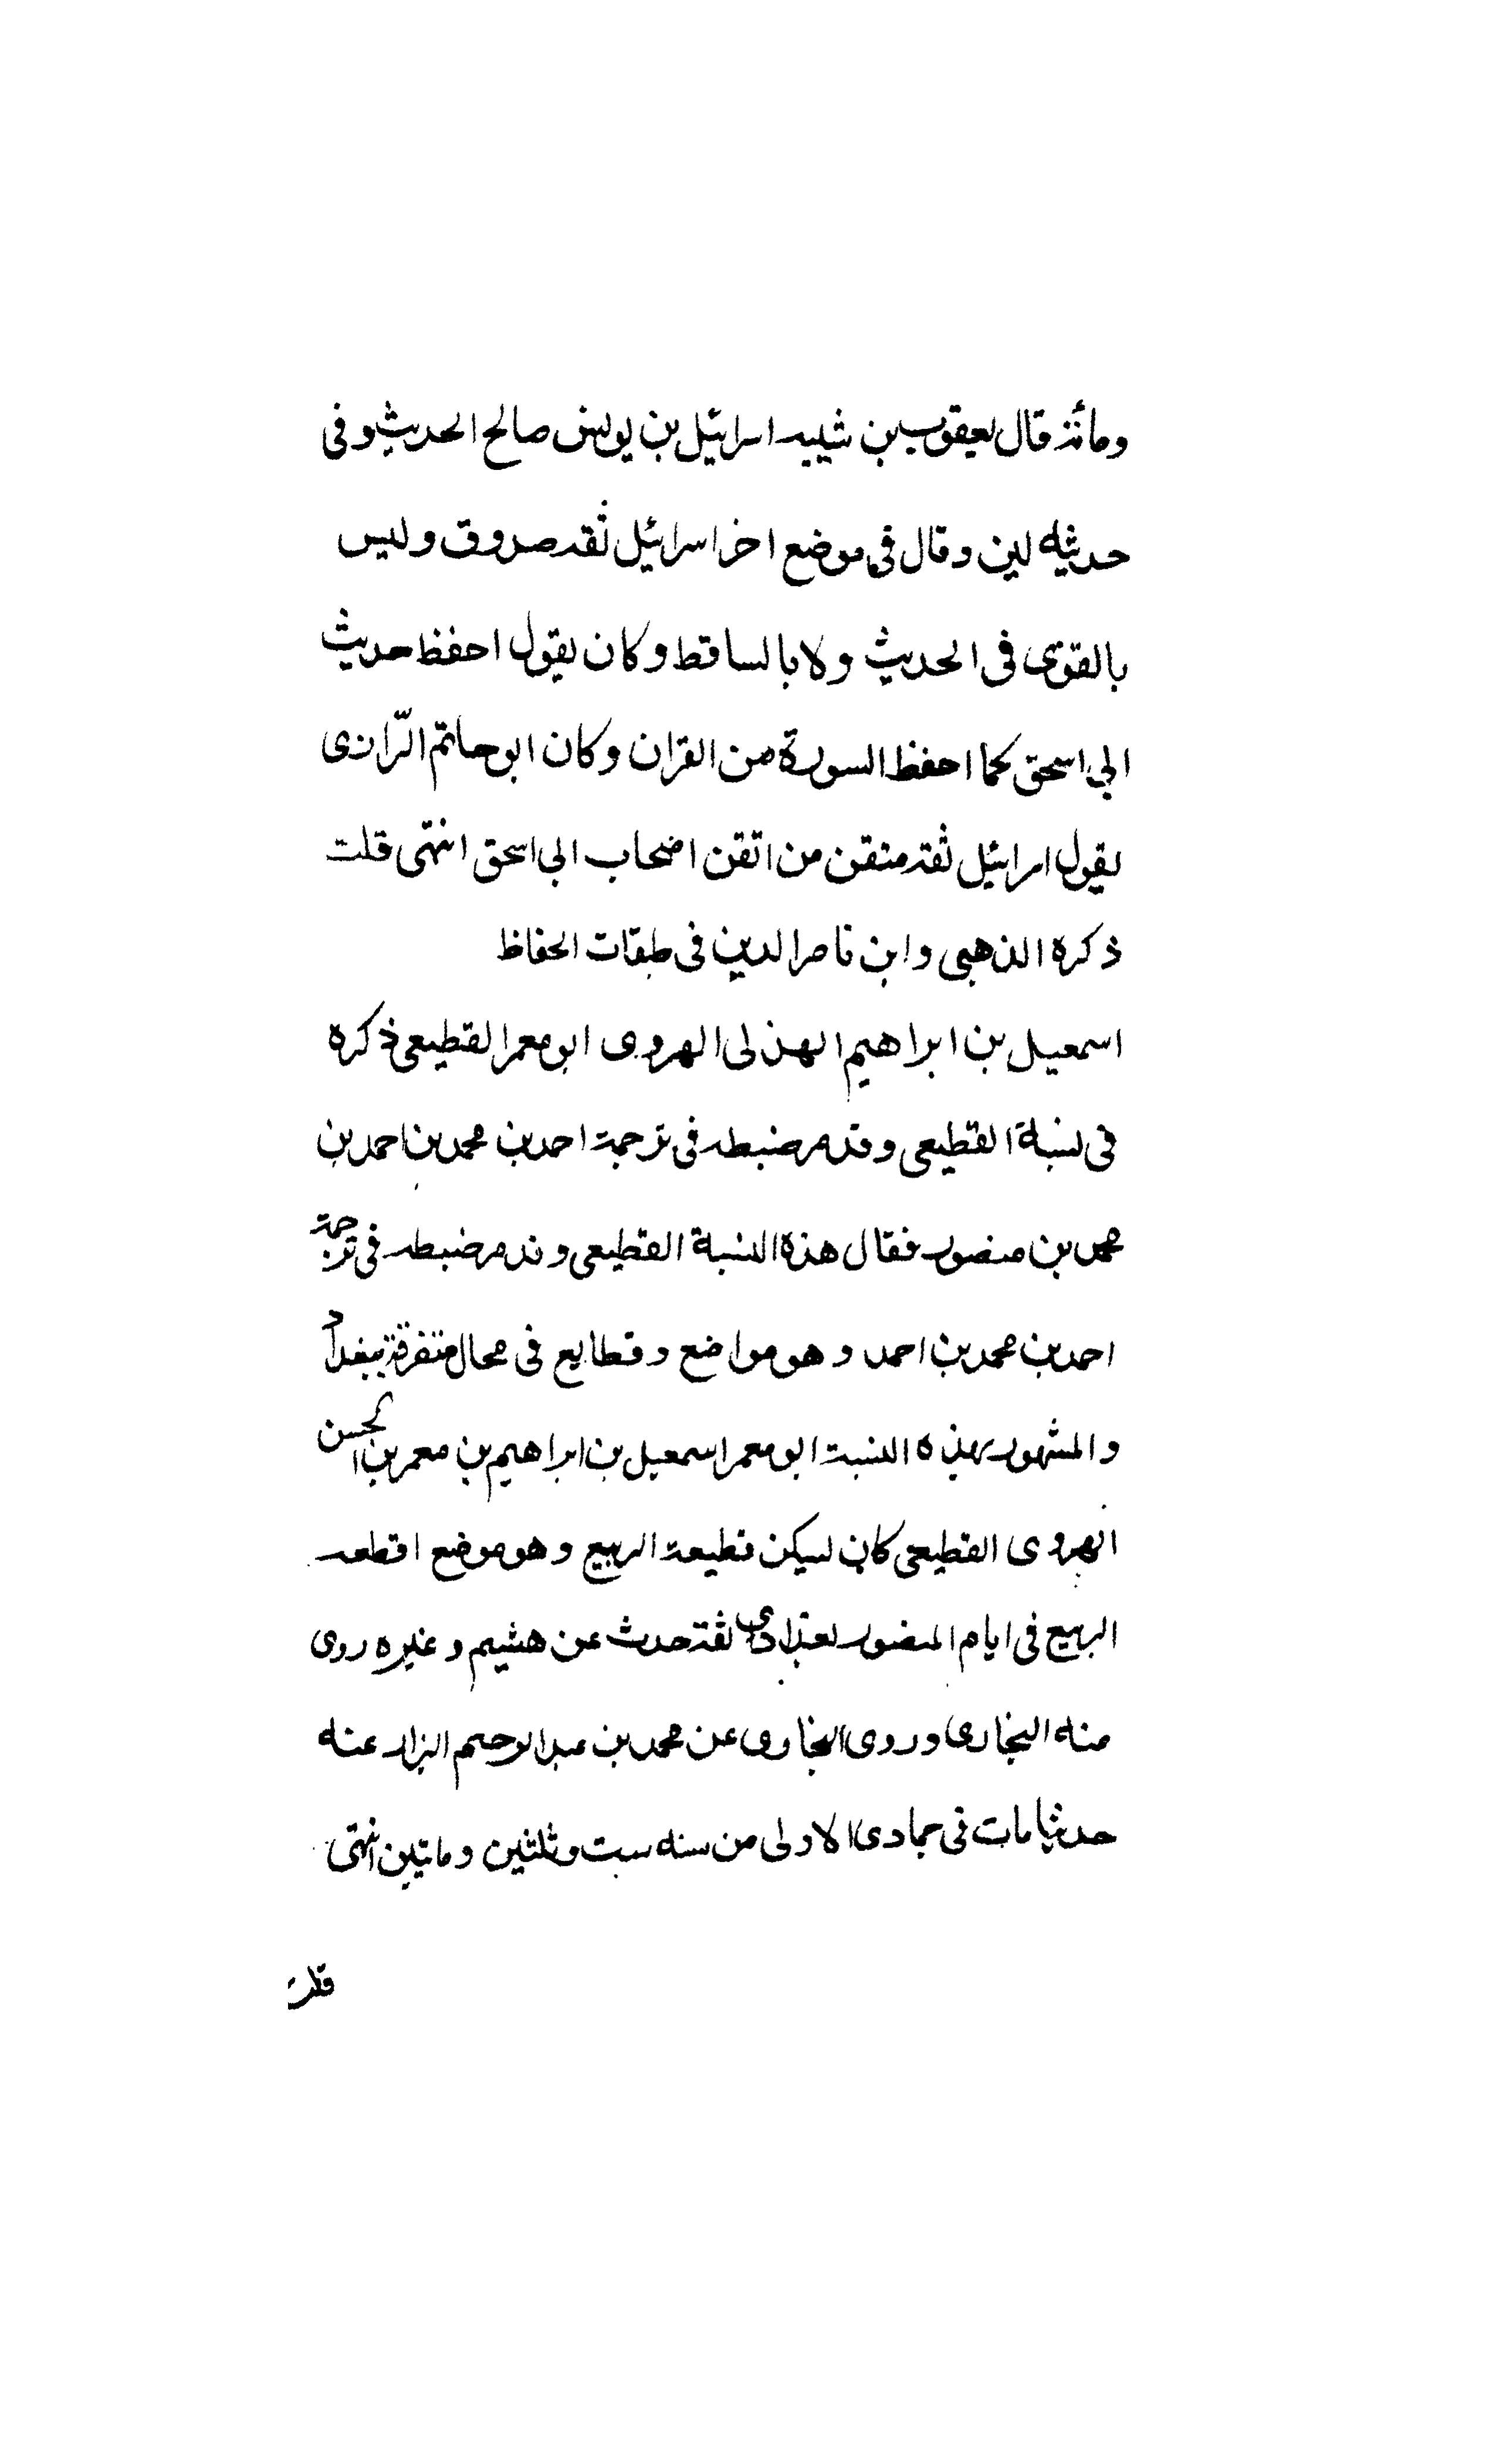 ومائة قال يعقوب بن شيبه اسرائيل بن يونس صالح الحديث وفى
حديثه لين وقال فى موضع اخر اسرائيل ثقه صدوق وليس
بالقوى فى الحديث ولا بالساقط وكان يقول احفظ حديث
ابى اسحق كما احفظ السورة من القران وكان ابو حاتم الرّازى
يقول اسرائيل ثقه متقن من اتقن اصحاب ابى اسحق انتهى قلت
ذكره الذهبى وابن ناصر الدين فى طبقات الحفاظ
اسمعيل بن ابراهيم الهذلى الهروى ابو معمر القطيعى ذكره
فى نسبة القطيعى وقد مر ضبطه فى ترجمة احمد بن محمد بن احمد بن
محمد بن منصور فقال هذه النسبة القطيعى وقد مر ضبطه فى ترجمة
احمد بن محمد بن احمد وهو مواضع وقطايع فى محال متفرقة ببغداد
والمشهور بهذه النسبة ابو معمر اسمعيل بن ابراهيم بن معمر بن الحسن
الهروى القطيعى كان يسكن قطيعة الربيع وهو موضع اقطعه
الربيع فى ايام المنصور بغدادى ثقة حدث عن هشيم وغيره روى
منه البخارى وروى البخارى عن محمد بن عبد الرحيم البزار عنه
حديثا مات فى جمادى الاولى من سنه ست وثلثين وماتين انتهى
قلت